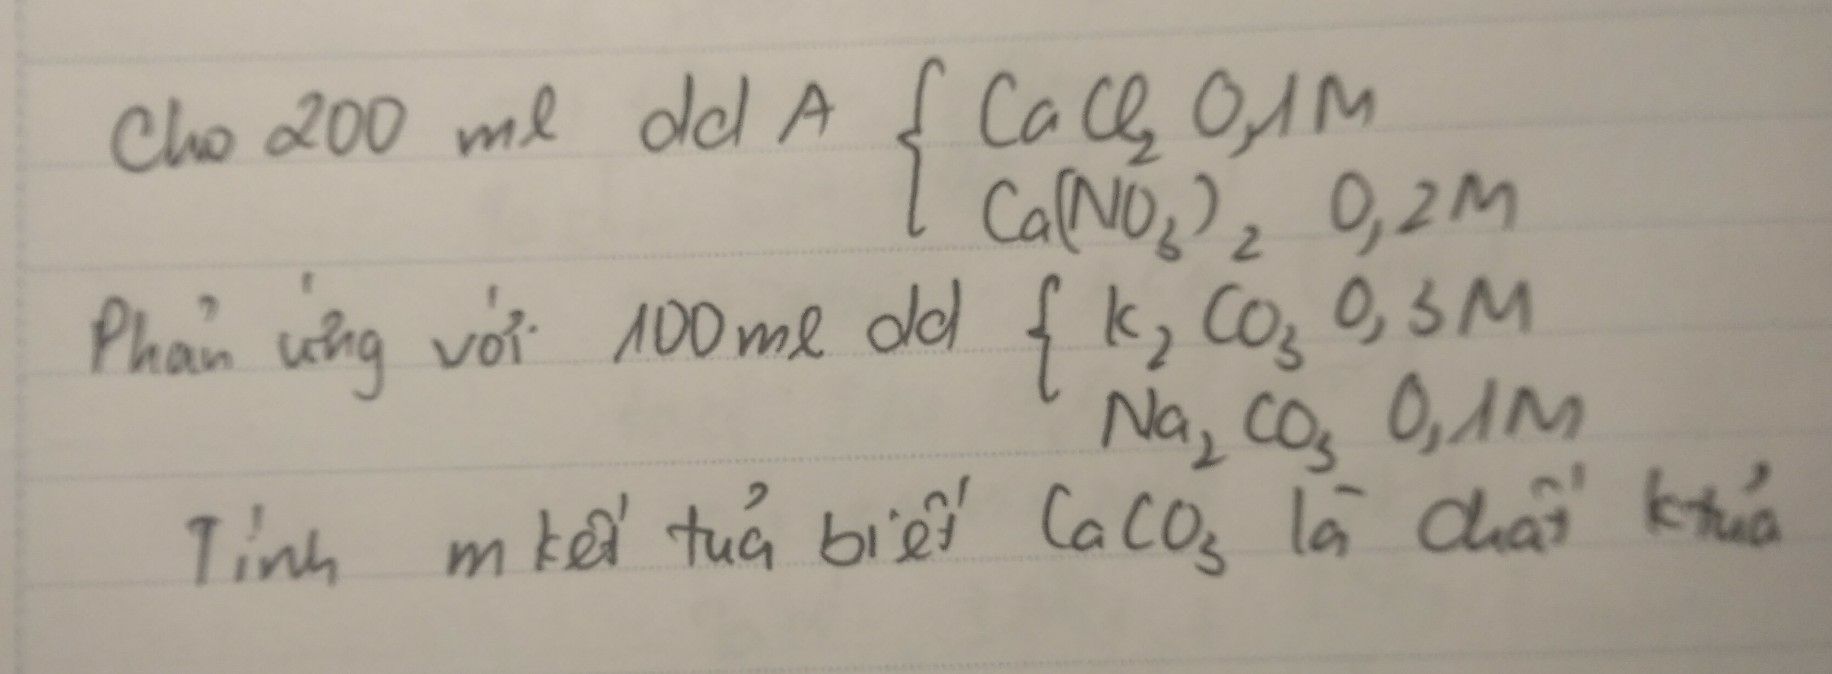 Cho 200 ml dd A { CaCl₂ 0,1M
Ca(NO₃)₂ 0,2M
Phản ứng với 100ml dd { K₂CO₃ 0,3M
Na₂CO₃ 0,1M
Tính m kết tuả biết CaCO₃ là chất ktuả